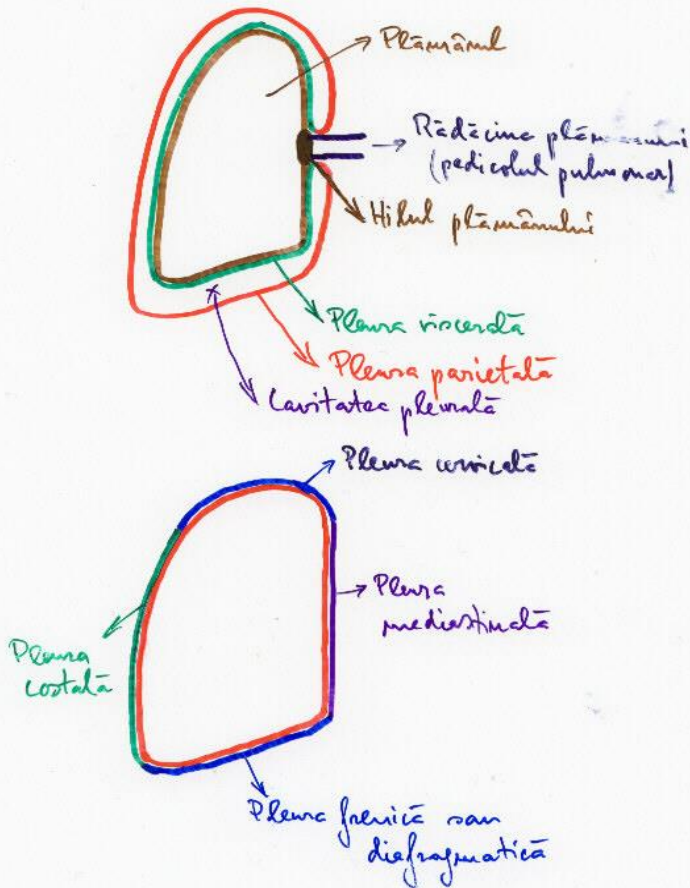 Plămânul
Rădăcina plămânului
(pedicolul pulmonar)
Hilul plămânului
Pleura viscerală
Pleura parietală
Cavitatea pleurală
Pleura cervicală
Pleura
mediastinală
Pleura
costală
Pleura frenică sau
diafragmatică